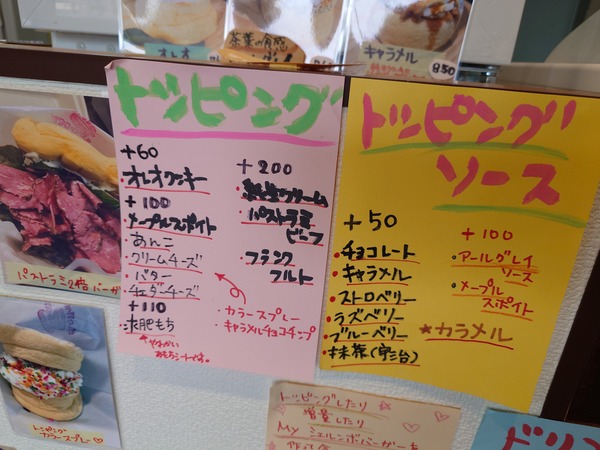 キャラメル
850
トッピング
+60
オレオクッキー
+100
メープルスポイト
・あんこ
・クリームチーズ
・バター
・チェダーチーズ
+110
・求肥もち
やわらかい
おもちシートです。
+200
・純生クリーム
・パストラミ
ビーフ
・フランク
フルト
・カラースプレー
・キャラメルチョコチップ
トッピング
ソース
+50
・チョコレート
・キャラメル
・ストロベリー
・ラズベリー
・ブルーベリー
・抹茶(宇治)
+100
・アールグレイ
ソース
・メープル
スポイト
★カラメル
トッピング
カラースプレー♡
トッピングしたり
増量したり
My シェルンボバーガーを
ドリン